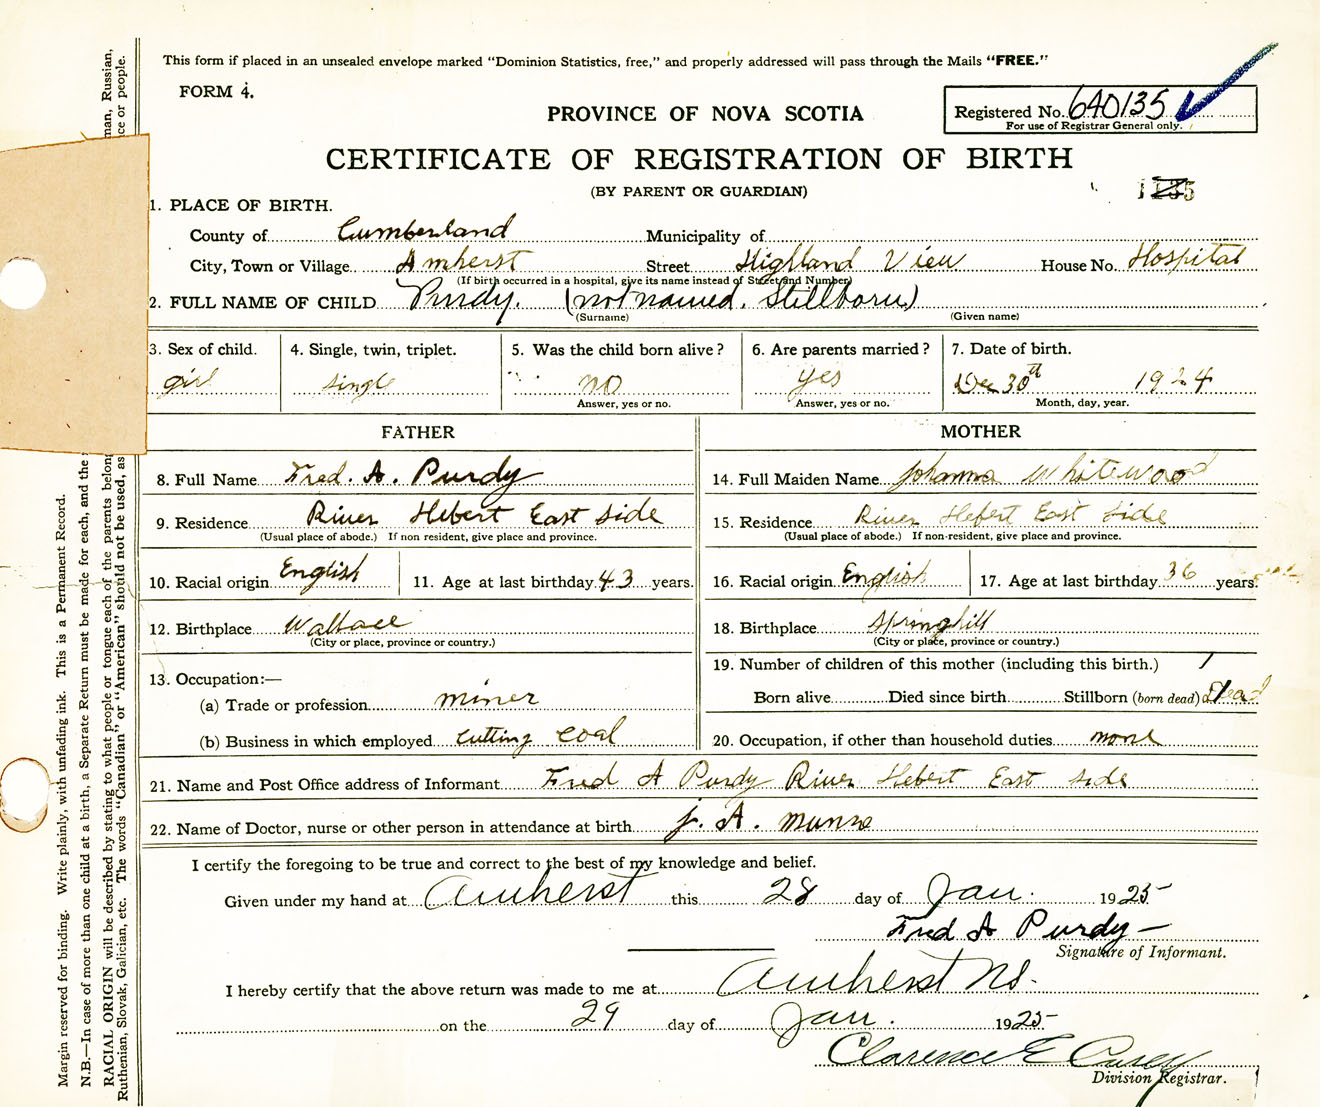 This form if placed in an unsealed envelope marked "Dominion Statistics, free," and properly addressed will pass through the Mails "FREE."
FORM 4.
PROVINCE OF NOVA SCOTIA
Registered No. 640135
For use of Registrar General only.
CERTIFICATE OF REGISTRATION OF BIRTH
(BY PARENT OR GUARDIAN)
1. PLACE OF BIRTH.
County of Cumberland Municipality of
City, Town or Village Amherst Street Highland View House No. Hospital
(If birth occurred in a hospital, give its name instead of Street and Number)
2. FULL NAME OF CHILD Purdy. (not named. Stillborn)
(Surname) (Given name)
3. Sex of child. 4. Single, twin, triplet. 5. Was the child born alive? 6. Are parents married? 7. Date of birth.
girl single no yes Dec 30th 1924
Answer, yes or no. Answer, yes or no. Month, day, year.
FATHER MOTHER
8. Full Name Fred. A. Purdy 14. Full Maiden Name Johanna Whitewood
9. Residence River Hebert East Side 15. Residence River Hebert East Side
(Usual place of abode.) If non resident, give place and province. (Usual place of abode.) If non-resident, give place and province.
10. Racial origin English 11. Age at last birthday 43 years. 16. Racial origin English 17. Age at last birthday 36 years.
12. Birthplace Wallace 18. Birthplace Springhill
(City or place, province or country.) (City or place, province or country.)
19. Number of children of this mother (including this birth.) 1
13. Occupation:—
(a) Trade or profession miner Born alive Died since birth Stillborn (born dead) Dead
(b) Business in which employed cutting coal 20. Occupation, if other than household duties none
21. Name and Post Office address of Informant Fred A Purdy River Hebert East side
22. Name of Doctor, nurse or other person in attendance at birth J. A. Munro
I certify the foregoing to be true and correct to the best of my knowledge and belief.
Given under my hand at Amherst this 28 day of Jan. 1925
Fred A Purdy
Signature of Informant.
I hereby certify that the above return was made to me at Amherst NS.
on the 29 day of Jan. 1925
Clarence E Casey
Division Registrar.
Margin reserved for binding. Write plainly, with unfading ink. This is a Permanent Record.
N.B.—In case of more than one child at a birth, a Separate Return must be made for each, and the
RACIAL ORIGIN will be described by stating to what people or tongue each of the parents belong man, Russian,
Ruthenian, Slovak, Galician, etc. The words "Canadian" or "American" should not be used, as ce or people.